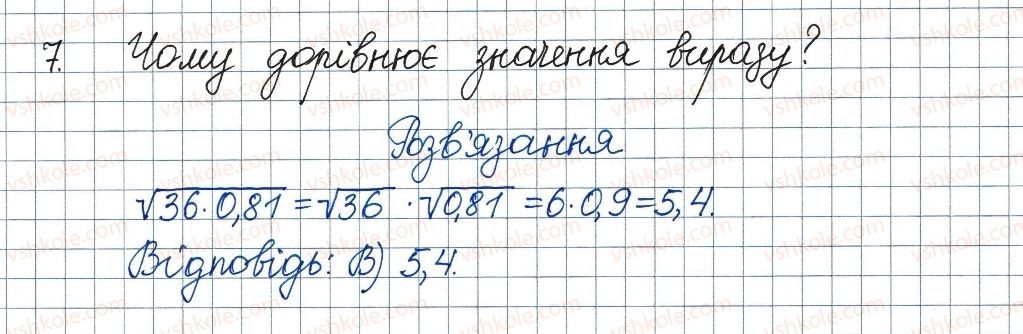 7. Чому дорівнює значення виразу?
Розв'язання
√36·0,81 = √36 · √0,81 = 6·0,9 = 5,4.
Відповідь: В) 5,4.